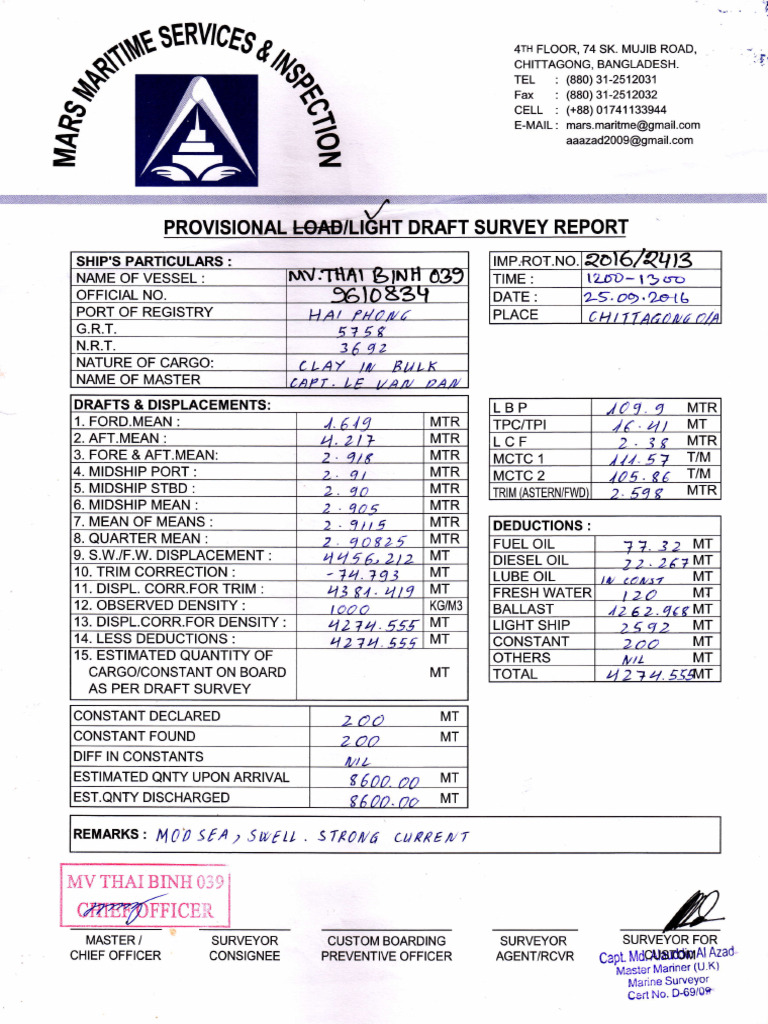 MARS MARITIME SERVICES & INSPECTION
4TH FLOOR, 74 SK. MUJIB ROAD,
CHITTAGONG, BANGLADESH.
TEL : (880) 31-2512031
Fax : (880) 31-2512032
CELL : (+88) 01741133944
E-MAIL : mars.maritme@gmail.com
aaazad2009@gmail.com
PROVISIONAL LOAD/LIGHT DRAFT SURVEY REPORT
SHIP'S PARTICULARS :
NAME OF VESSEL : MV. THAI BINH 039
OFFICIAL NO. 9610834
PORT OF REGISTRY HAI PHONG
G.R.T. 5758
N.R.T. 3692
NATURE OF CARGO: CLAY IN BULK
NAME OF MASTER CAPT. LE VAN DAN
IMP.ROT.NO. 2016/2413
TIME : 1200-1300
DATE : 25.09.2016
PLACE CHITTAGONG O/A
DRAFTS & DISPLACEMENTS:
1. FORD.MEAN : 1.619 MTR
2. AFT.MEAN : 4.217 MTR
3. FORE & AFT.MEAN: 2.918 MTR
4. MIDSHIP PORT : 2.91 MTR
5. MIDSHIP STBD : 2.90 MTR
6. MIDSHIP MEAN : 2.905 MTR
7. MEAN OF MEANS : 2.9115 MTR
8. QUARTER MEAN : 2.90825 MTR
9. S.W./F.W. DISPLACEMENT : 4456,212 MT
10. TRIM CORRECTION : -74.793 MT
11. DISPL. CORR.FOR TRIM : 4381.419 MT
12. OBSERVED DENSITY : 1000 KG/M3
13. DISPL.CORR.FOR DENSITY : 4274.555 MT
14. LESS DEDUCTIONS : 4274.555 MT
15. ESTIMATED QUANTITY OF
CARGO/CONSTANT ON BOARD MT
AS PER DRAFT SURVEY
L B P 109.9 MTR
TPC/TPI 16.41 MT
L C F 2.38 MTR
MCTC 1 111.57 T/M
MCTC 2 105.86 T/M
TRIM (ASTERN/FWD) 2.598 MTR
DEDUCTIONS :
FUEL OIL 77.32 MT
DIESEL OIL 22.267 MT
LUBE OIL IN CONST MT
FRESH WATER 120 MT
BALLAST 1262.968 MT
LIGHT SHIP 2592 MT
CONSTANT 200 MT
OTHERS NIL MT
TOTAL 4274.555 MT
CONSTANT DECLARED 200 MT
CONSTANT FOUND 200 MT
DIFF IN CONSTANTS NIL
ESTIMATED QNTY UPON ARRIVAL 8600.00 MT
EST.QNTY DISCHARGED 8600.00 MT
REMARKS : MOD SEA, SWELL. STRONG CURRENT
MV THAI BINH 039
CHIEF OFFICER
MASTER /
CHIEF OFFICER
SURVEYOR
CONSIGNEE
CUSTOM BOARDING
PREVENTIVE OFFICER
SURVEYOR
AGENT/RCVR
SURVEYOR FOR
CUSTOM
Capt. Md. Alauddin Al Azad
Master Mariner (U.K)
Marine Surveyor
Cert No. D-69/09